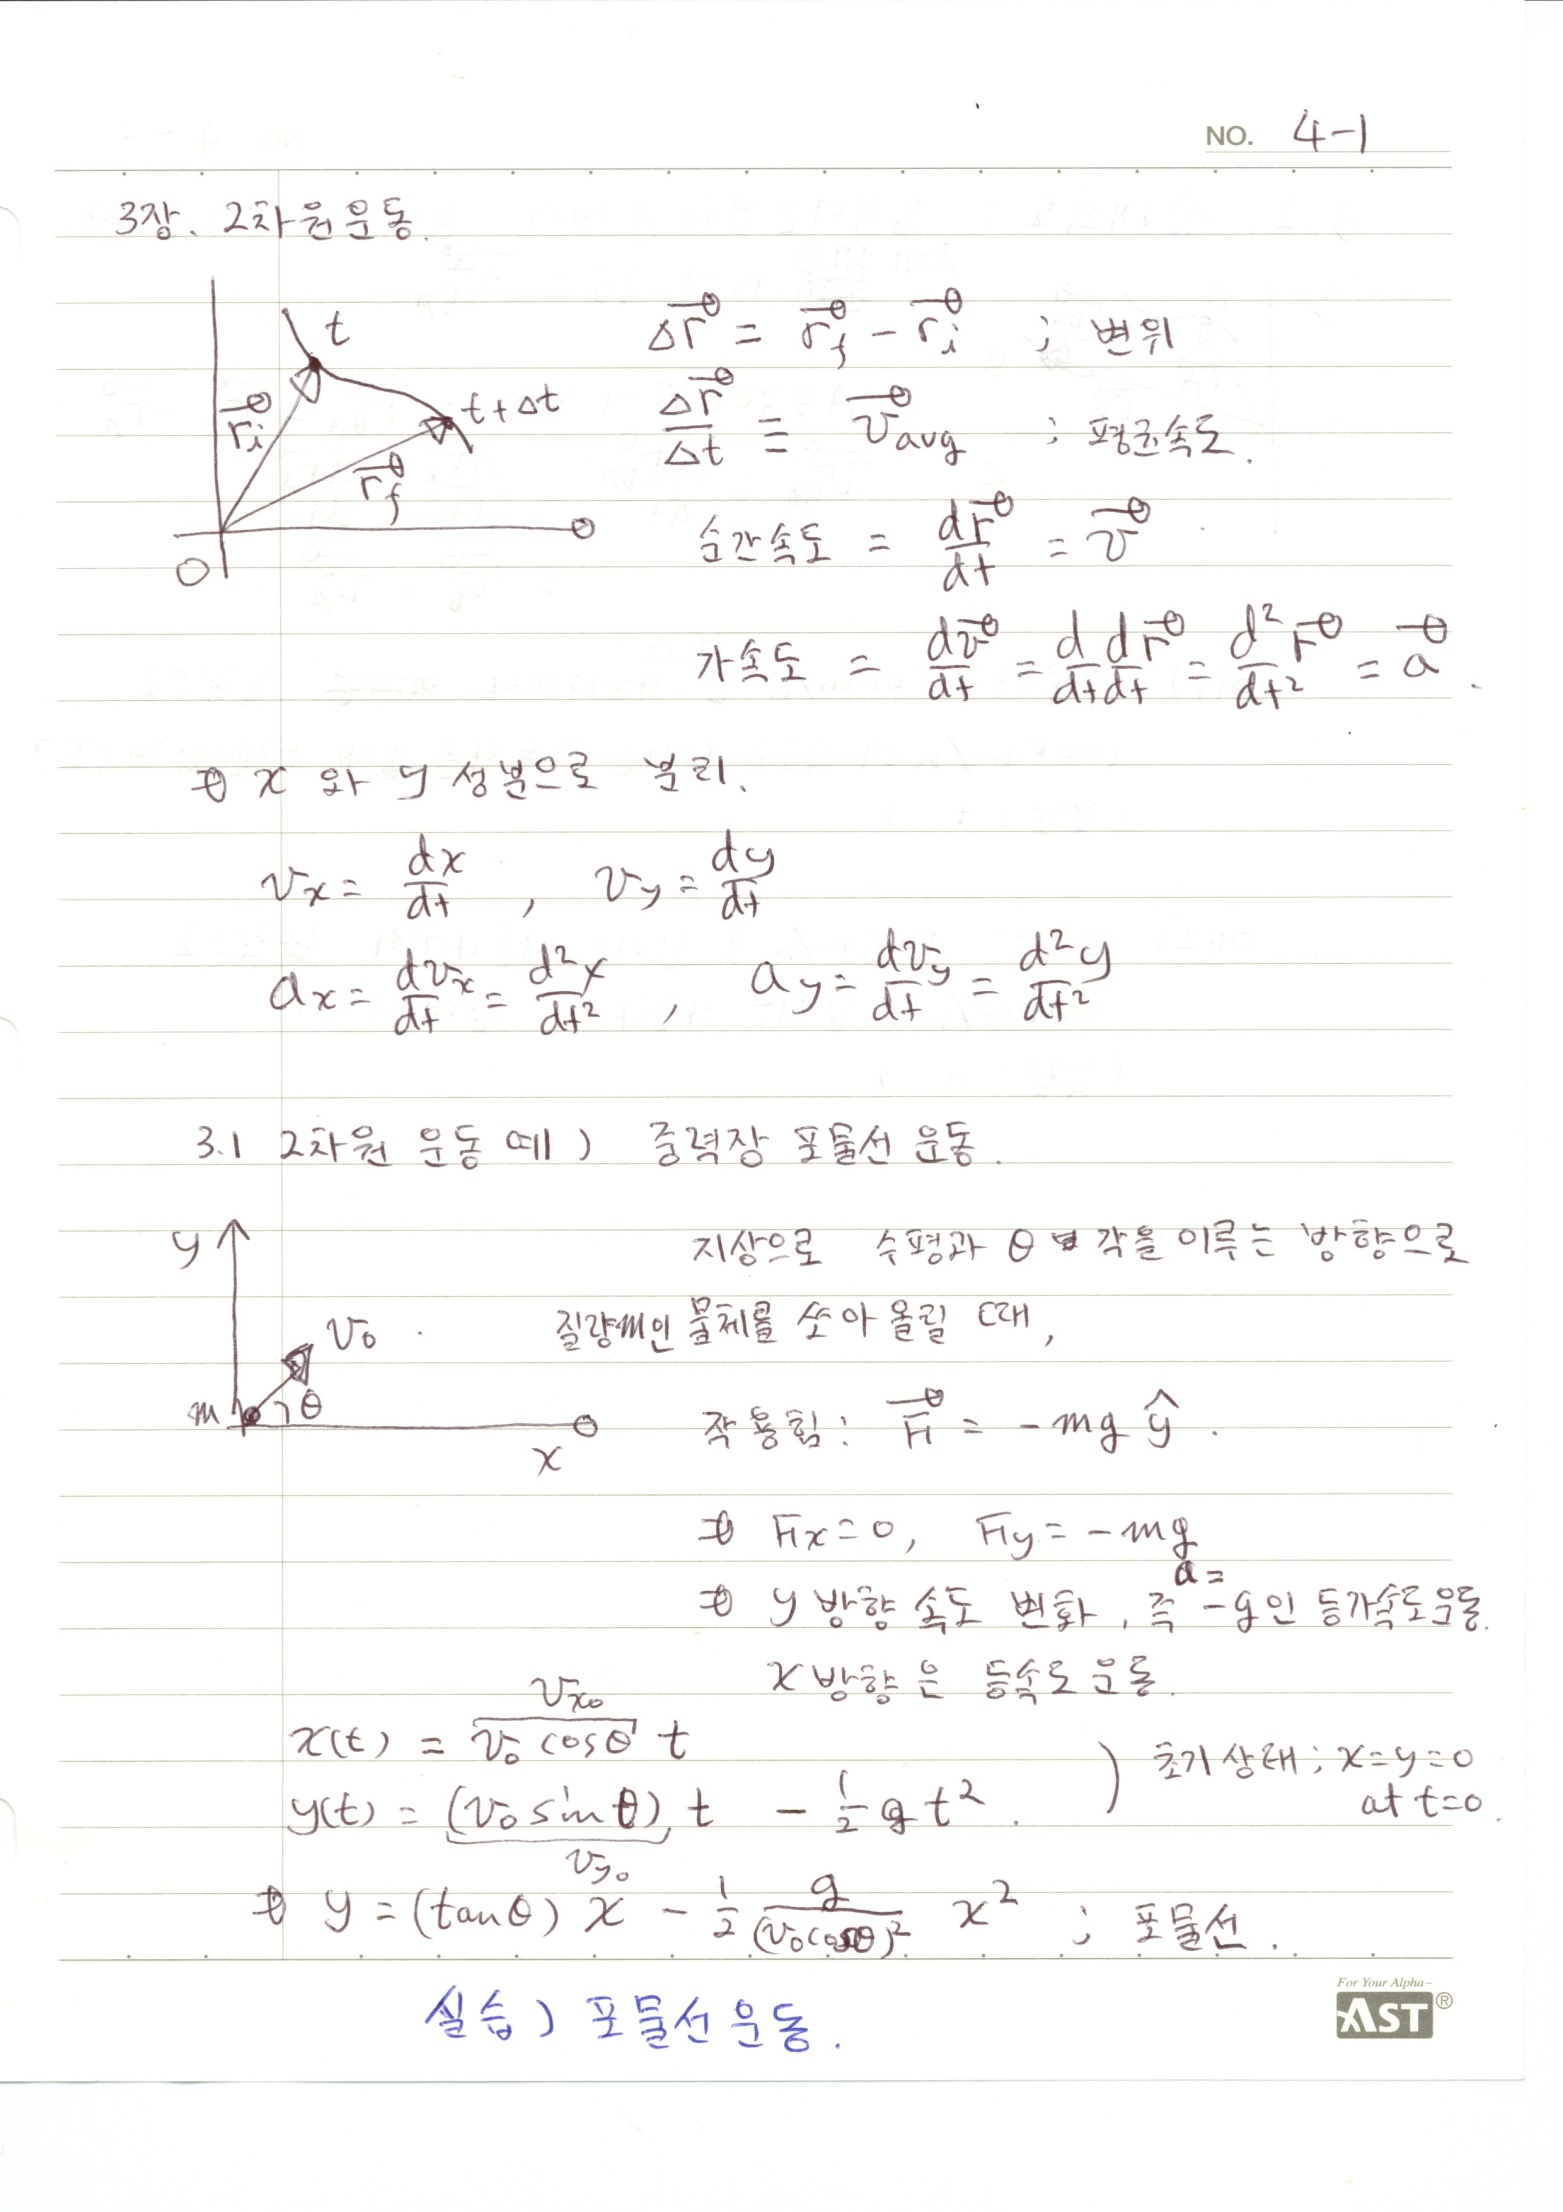 NO. 4-1
3장. 2차원 운동.
t
t+Δt
r⃗i
r⃗f
O
Δr⃗ = r⃗f - r⃗i ; 변위
Δr⃗/Δt ≡ v⃗avg ; 평균속도.
순간속도 = dr⃗/dt = v⃗
가속도 = dv⃗/dt = d/dt dr⃗/dt = d²/dt² r⃗ = a⃗.
⇒ x 와 y 성분으로 분리.
vx = dx/dt , vy = dy/dt
ax = dvx/dt = d²x/dt² , ay = dvy/dt = d²y/dt²
3.1 2차원 운동 예) 중력장 포물선 운동.
y
v₀
m
θ
x
지상으로 수평과 θ 각을 이루는 방향으로
질량 m인 물체를 쏘아 올릴 때,
작용힘 : F⃗ = - mg ŷ.
⇒ Fx = 0, Fy = - mg
⇒ y 방향 속도 변화, 즉 a = -g인 등가속도운동.
x 방향은 등속도 운동.
vx₀
x(t) = v₀ cosθ t
y(t) = (v₀ sinθ) t - 1/2 g t².
vy₀
) 초기상태; x=y=0
at t=0.
⇒ y = (tanθ) x - 1/2 g/(v₀cosθ)² x² ; 포물선.
실습) 포물선 운동.
For Your Alpha~
AST®